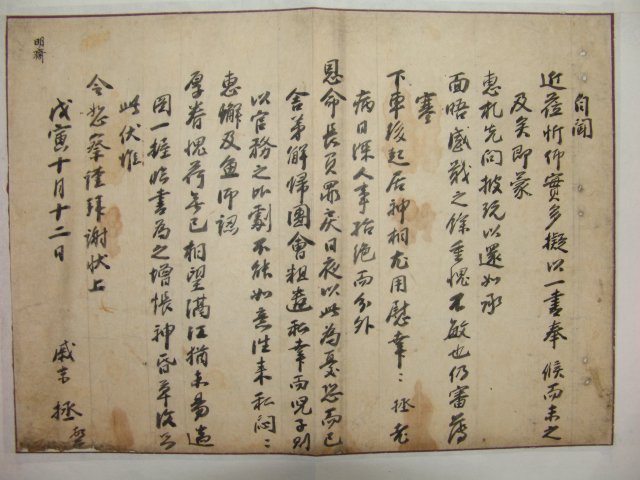 自聞
近莅忻仰實多擬以一書奉 候而未之
及矣即蒙
惠札先問披玩以還如承
面晤感戢之餘重愧不敏也仍審薄
寒
下車後起居神相尤用慰幸〻拯老
病日深人事拾絶而分外
恩命長負罪戾日夜以此爲憂恐而已
舍弟解歸團會粗遣私幸而兒子則
以官務之比劇不能如意往來私悶〻
惠儩及魚 認
厚眷愧荷無已相望滿江猶未易造
因一握臨書爲之增悵神昏草
此伏惟
令恕察謹拜謝狀上
戊寅十月十二日
戚末 拯
明齋